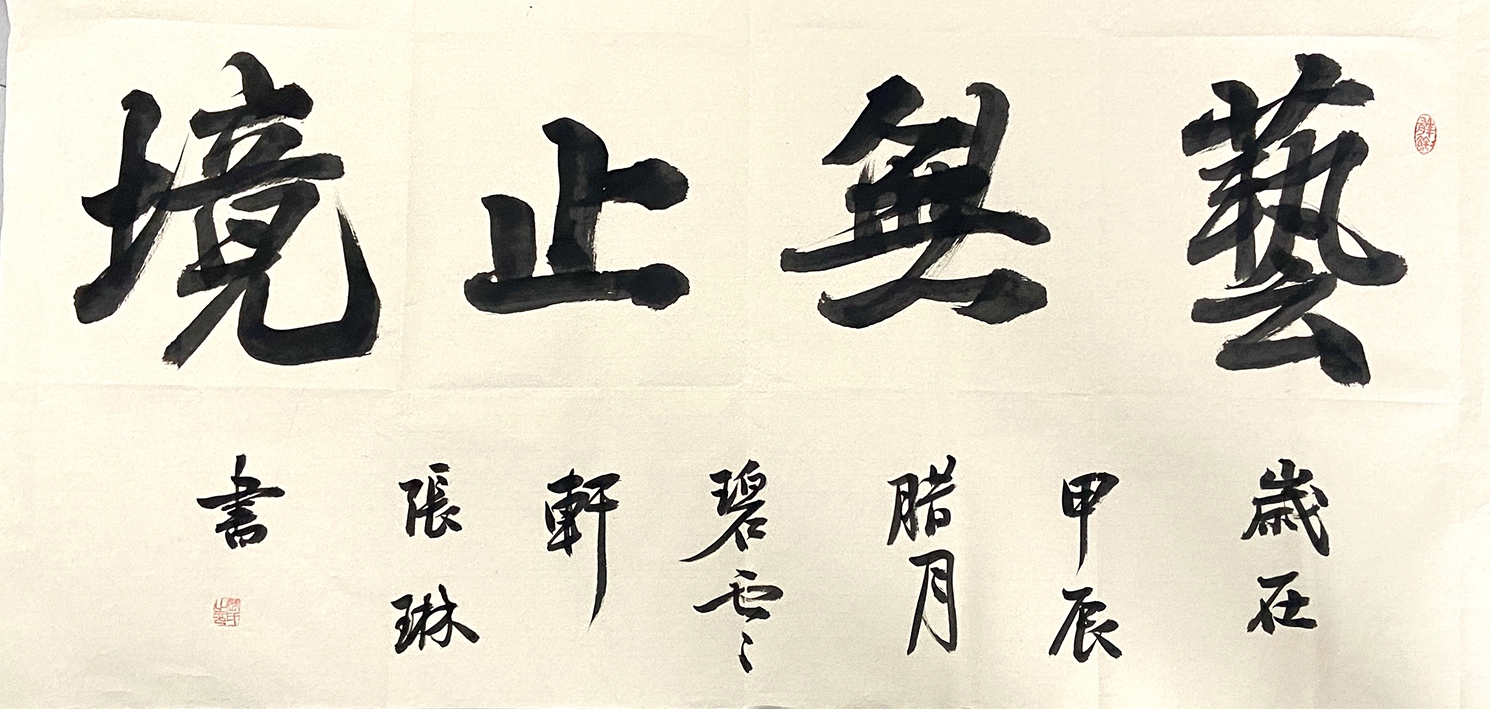 藝無止境
歲在
甲辰
腊月
碧雲
軒
張琳
書